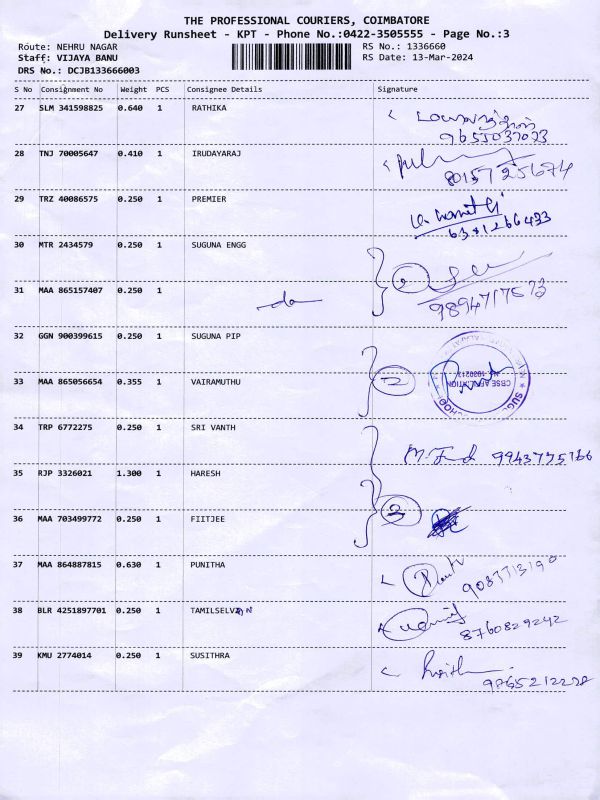 THE PROFESSIONAL COURIERS, COIMBATORE
Delivery Runsheet - KPT - Phone No.:0422-3505555 - Page No.:3
Route: NEHRU NAGAR RS No.: 1336660
Staff: VIJAYA BANU RS Date: 13-Mar-2024
DRS No.: DCJB133666003
S No Consignment No Weight PCS Consignee Details Signature
27 SLM 341598825 0.640 1 RATHIKA
9655037033
28 TNJ 70005647 0.410 1 IRUDAYARAJ
8015725674
29 TRZ 40086575 0.250 1 PREMIER
6381266433
30 MTR 2434579 0.250 1 SUGUNA ENGG
2
31 MAA 865157407 0.250 1 do
9894717573
32 GGN 900399615 0.250 1 SUGUNA PIP
33 MAA 865056654 0.355 1 VAIRAMUTHU
2
CBSE AFFILIATION
34 TRP 6772275 0.250 1 SRI VANTH
9943775766
35 RJP 3326021 1.300 1 HARESH
3
36 MAA 703499772 0.250 1 FIITJEE
37 MAA 864887815 0.630 1 PUNITHA
9083713190
38 BLR 4251897701 0.250 1 TAMILSELVAN
8760829242
39 KMU 2774014 0.250 1 SUSITHRA
9865212228